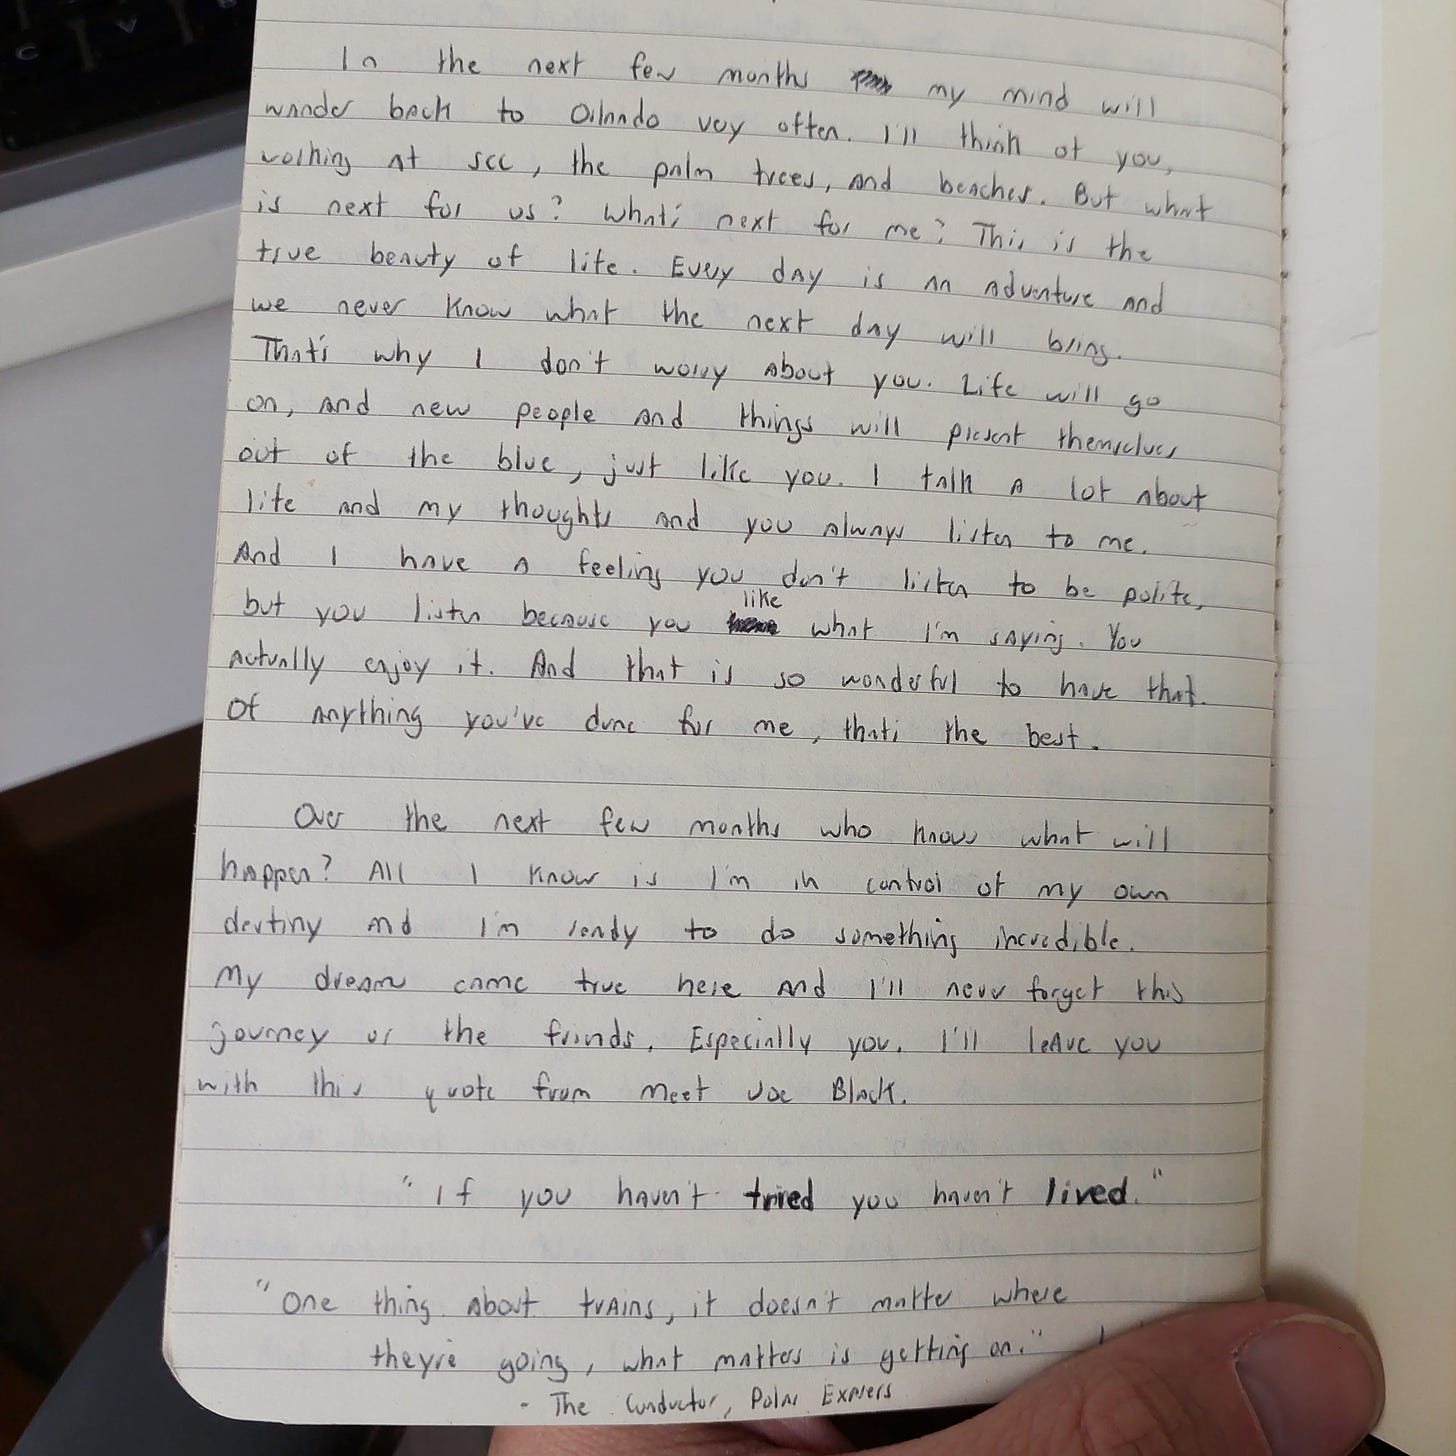 In the next few months my mind will
wander back to Orlando very often. I'll think of you,
working at scc, the palm trees, and beaches. But what
is next for us? What's next for me? This is the
true beauty of life. Every day is an adventure and
we never know what the next day will bring.
That's why I don't worry about you. Life will go
on, and new people and things will present themselves
out of the blue, just like you. I talk a lot about
life and my thoughts and you always listen to me.
And I have a feeling you don't listen to be polite,
but you listen because you like what I'm saying. You
actually enjoy it. And that is so wonderful to have that.
Of anything you've done for me, that's the best.
Over the next few months who knows what will
happen? All I know is I'm in control of my own
destiny and I'm ready to do something incredible.
My dream came true here and I'll never forget this
journey or the friends. Especially you. I'll leave you
with this quote from Meet Joe Black.
"If you haven't tried you haven't lived."
"One thing about trains, it doesn't matter where
they're going, what matters is getting on."
- The Conductor, Polar Express